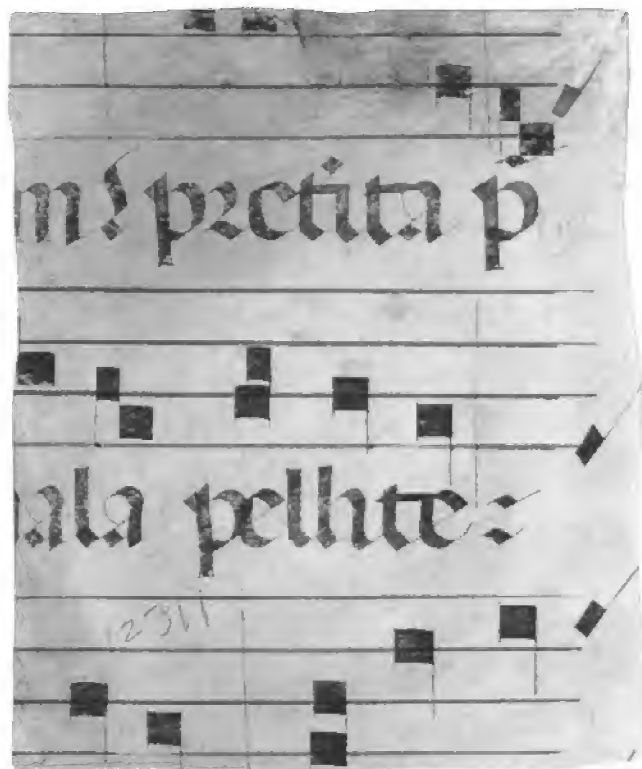 m: pretita p̄
ala pellite
12311